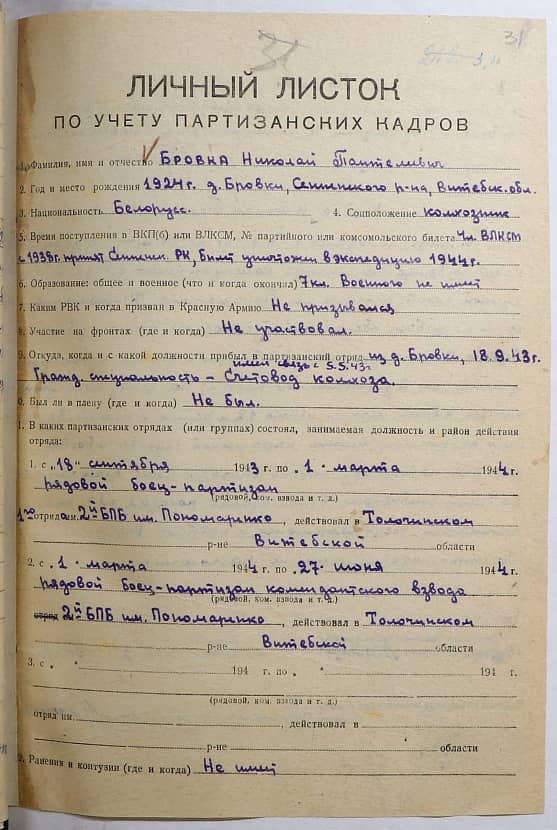 31
31
3,11
ЛИЧНЫЙ ЛИСТОК
ПО УЧЕТУ ПАРТИЗАНСКИХ КАДРОВ
1. Фамилия, имя и отчество БРОВКА Николай Пантелевич
2. Год и место рождения 1924г. д. Бровки, Сеннинского р-на, Витебск. обл.
3. Национальность Белорусс. 4. Соцположение колхозник
5. Время поступления в ВКП(б) или ВЛКСМ, № партийного или комсомольского билета Чл. ВЛКСМ
с 1938г. принят Сеннинск. РК, билет уничтожен в экспедицию 1944г.
6. Образование: общее и военное (что и когда окончил) 7кл. Военного не имеет
7. Каким РВК и когда призван в Красную Армию Не призывался
8. Участие на фронтах (где и когда) Не участвовал.
9. Откуда, когда и с какой должности прибыл в партизанский отряд из д. Бровки, 18.9.43г.
имел связь с 5.5.43г
Гражд. специальность – Счетовод колхоза.
0. Был ли в плену (где и когда) Не был.
1. В каких партизанских отрядах (или группах) состоял, занимаемая должность и район действия
отряда:
1. с „18" сентября 1943г. по „1" марта 1944г.
рядовой боец-партизан
(рядовой, ком. взвода и т. д.)
1го отряд им. 2й БПБ им. Пономаренко, действовал в Толочинском
р-не Витебской области
2. с „1" марта 1944г. по „27" июня 1944г.
рядовой боец-партизан комендантского взвода
(рядовой, ком. взвода и т. д.)
отряд 2й БПБ им. Пономаренко, действовал в Толочинском
р-не Витебской области
3. с „ " 194 г. по „ " 194 г.
(рядовой, ком. взвода и т. д.)
отряд им. , действовал в
р-не области
2. Ранения и контузии (где и когда) Не имеет